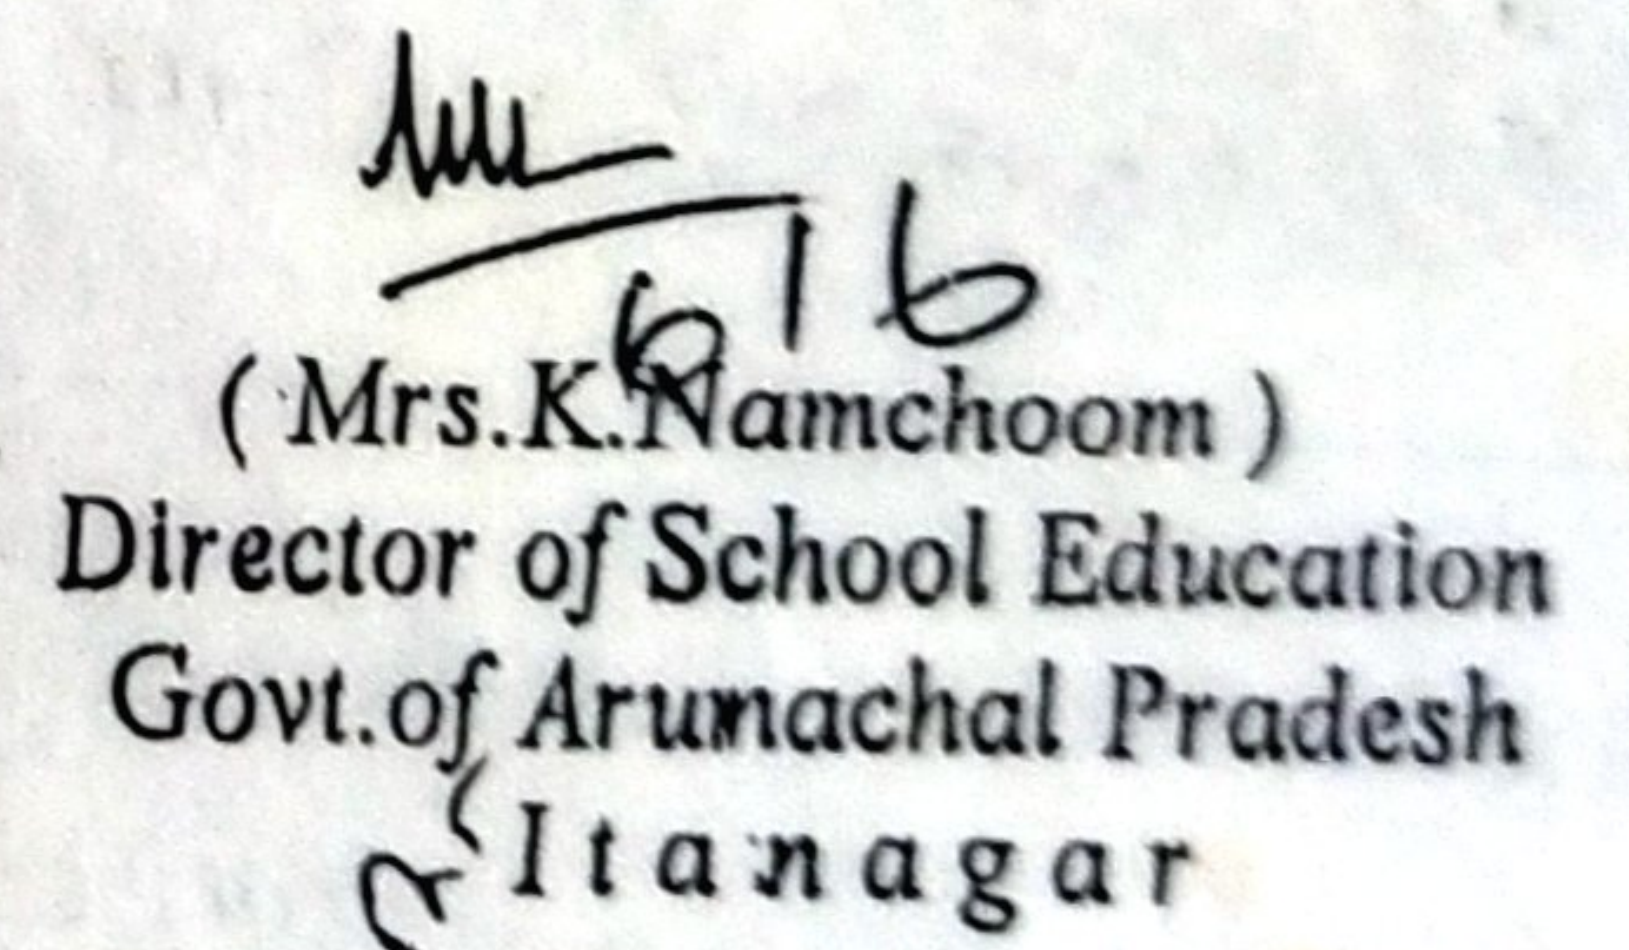 6/6
( Mrs.K.Namchoom )
Director of School Education
Govt.of Arunachal Pradesh
Itanagar